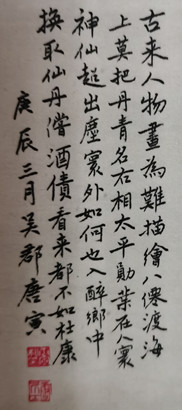 古来人物畫為難描繪八僊渡海
上莫把丹青名右相太平勛業在人寰
神仙超出塵寰外如何也入醉鄉中
換取仙丹償酒債看来都不如杜康
庚辰三月吴郡唐寅